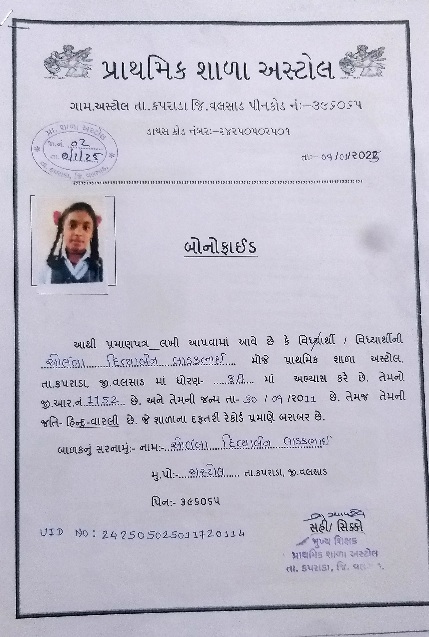 પ્રાથમિક શાળા અસ્ટોલ
ગામ.અસ્ટોલ તા.કપરાડા જિ.વલસાડ પીનકોડ નં:-૩૯૬૦૬૫
ડાયસ કોડ નંબર:-૨૪૨૫૦૫૦૨૫૦૧
પ્રા. શાળા અસ્ટોલ
જા.નં ૦2
તા:- ૦1/૦1/2025
બોનોફાઈડ
આથી પ્રમાણપત્ર લખી આપવામાં આવે છે કે વિધ્યાર્થી / વિધ્યાર્થીની
દિવ્યાબેન લાડકભાઈ મોજે પ્રાથમિક શાળા અસ્ટોલ,
તા.કપરાડા, જી.વલસાડ માં ધોરણ- માં અભ્યાસ કરે છે. તેમનો
જી.આર.નં 1152 છે. અને તેમની જન્મ તા- 30 / 09 / 2011 છે. તેમજ તેમની
જતિ- હિન્દુ-વારલી છે. જે શાળાના દફતરી રેકોર્ડ પ્રમાણે બરાબર છે.
બાળકનું સરનામું:- નામ:- દિવ્યાબેન લાડકભાઈ
મુ.પો:- અસ્ટોલ તા.કપરાડા, જી.વલસાડ
પિન:- ૩૯૬૦૬૫
UID NO: 242505025011720114
સહી/ સિક્કો
મુખ્ય શિક્ષક
પ્રાથમિક શાળા અસ્ટોલ
તા. કપરાડા, જિ.